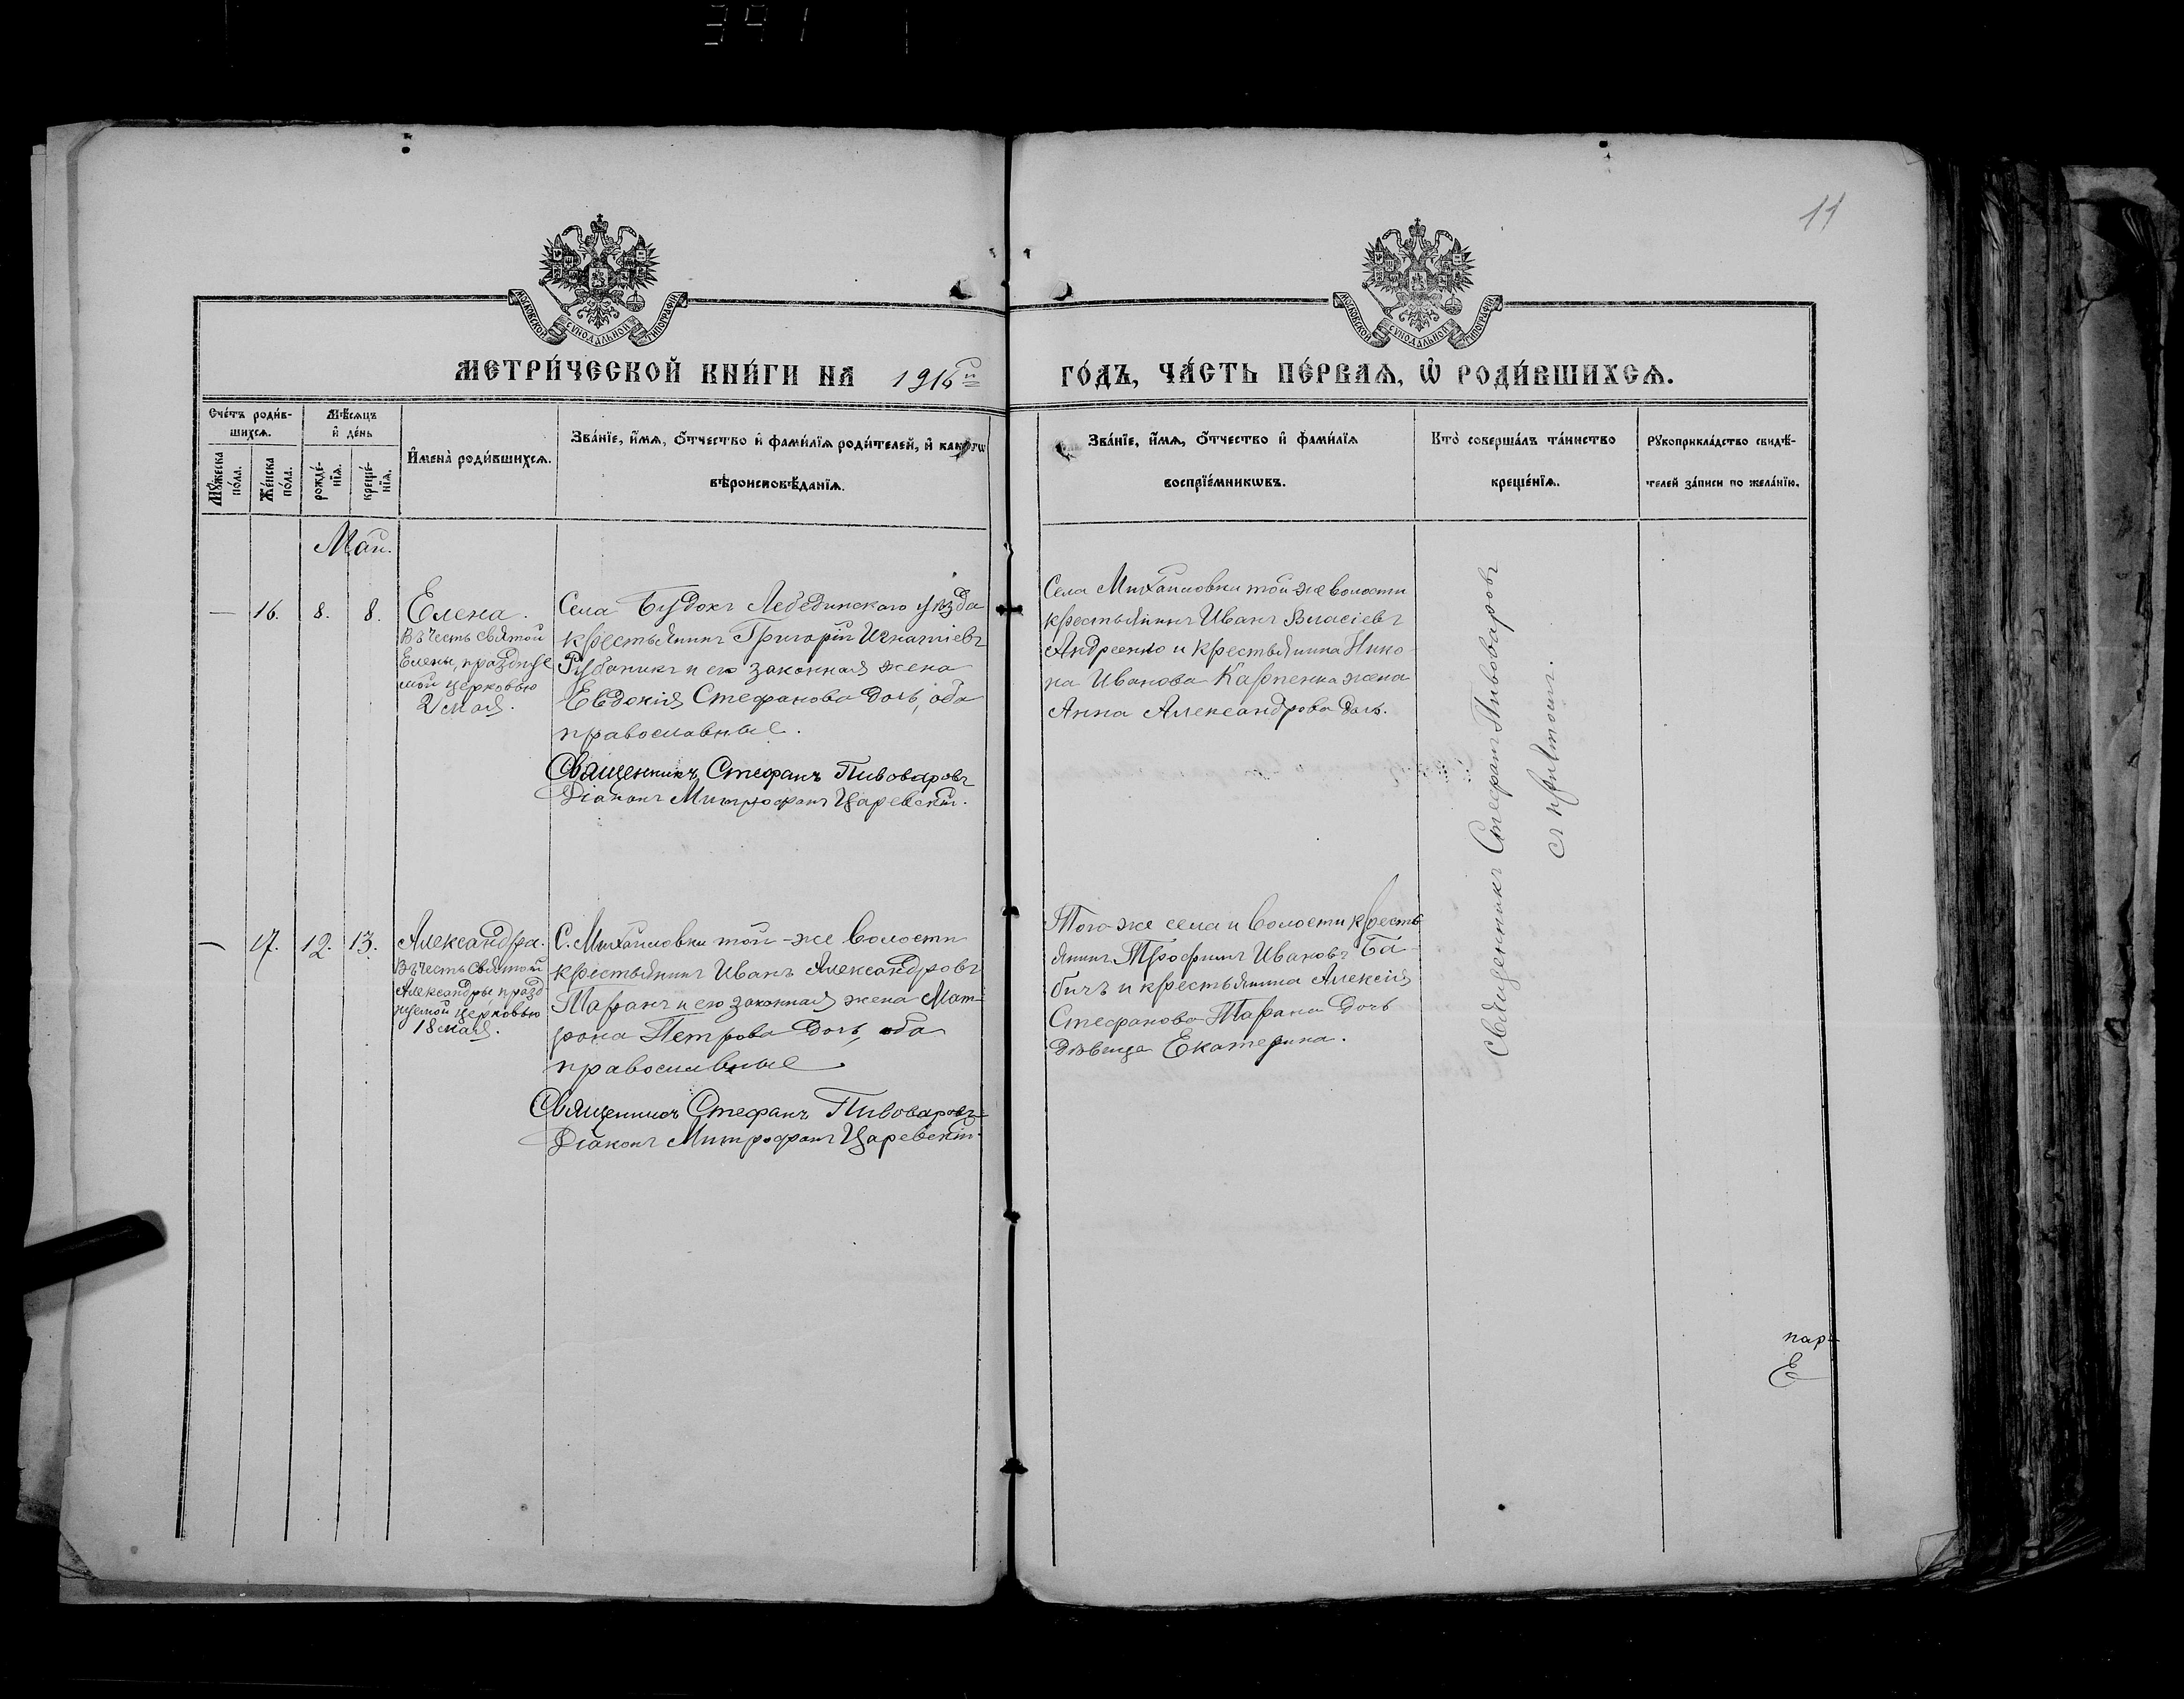 391
11
МОСКОВСКОЙ СѴНОДАЛЬНОЙ ТИПОГРАФІИ
МОСКОВСКОЙ СѴНОДАЛЬНОЙ ТИПОГРАФІИ
МЕТРИ́ЧЕСКОЙ КНИ́ГИ НА 1916й
ГО́ДЪ, ЧА́СТЬ ПЕ́РВАѦ, Ѡ҆ РОДИ́ВШИХСѦ.
Сче́тъ роди́в-
шихсѧ.
Мꙋ́жеска
по́ла.
Же́нска
по́ла.
Мѣ́сѧцъ
и҆ де́нь
рожде́-
нїѧ.
креще́-
нїѧ.
И҆мена̀ роди́вшихсѧ.
Зва́нїе, и҆́мѧ, ѻ҆́тчество и҆ фами́лїѧ роди́телей, и҆ како́гѡ
вѣроисповѣ́данїѧ.
Зва́нїе, и҆́мѧ, ѻ҆́тчество и҆ фами́лїѧ
воспрїе́мникѡвъ.
Кто̀ соверша́лъ та́инство
креще́нїѧ.
Рꙋкоприкла́дство свидѣ́-
телей за́писи по жела́нїю.
Май.
— 16. 8. 8.
Елена.
Въ честь святой
Елены, празднуе
мой церковью
21 мая.
Села Будокъ Лебединскаго уѣзда
крестьянинъ Григорій Игнатіевъ
Рубаникъ и его законная жена
Евдокія Стефанова дочь, оба
православные.
Священникъ Стефанъ Пивоваровъ
Діаконъ Митрофанъ Царевскій.
Села Михайловки той же волости
крестьянинъ Иванъ Власіевъ
Андреенко и крестьянина Нико-
на Иванова Карпенка жена
Анна Александрова дочь.
Священникъ Стефанъ Пивоваровъ
съ причтомъ.
— 17. 12. 13.
Александра.
Въ честь святой
Александры празд
нуемой церковью
18 мая.
С. Михайловки той-же волости
крестьянинъ Иванъ Александровъ
Таранъ и его законная жена Мат-
рона Петрова дочь, оба
православные
Священникъ Стефанъ Пивоваровъ
Діаконъ Митрофанъ Царевскій.
Того же села и волости кресть
янинъ Трофимъ Ивановъ Ба-
бичъ и крестьянина Алексія
Стефанова Тарана дочь
дѣвица Екатерина.
пар-
Е